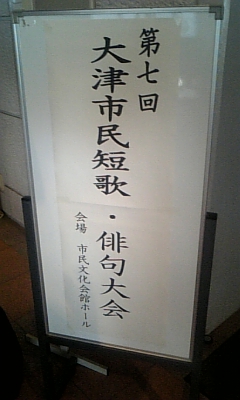 第七回
大津市民短歌・俳句大会
会場 市民文化会館ホール